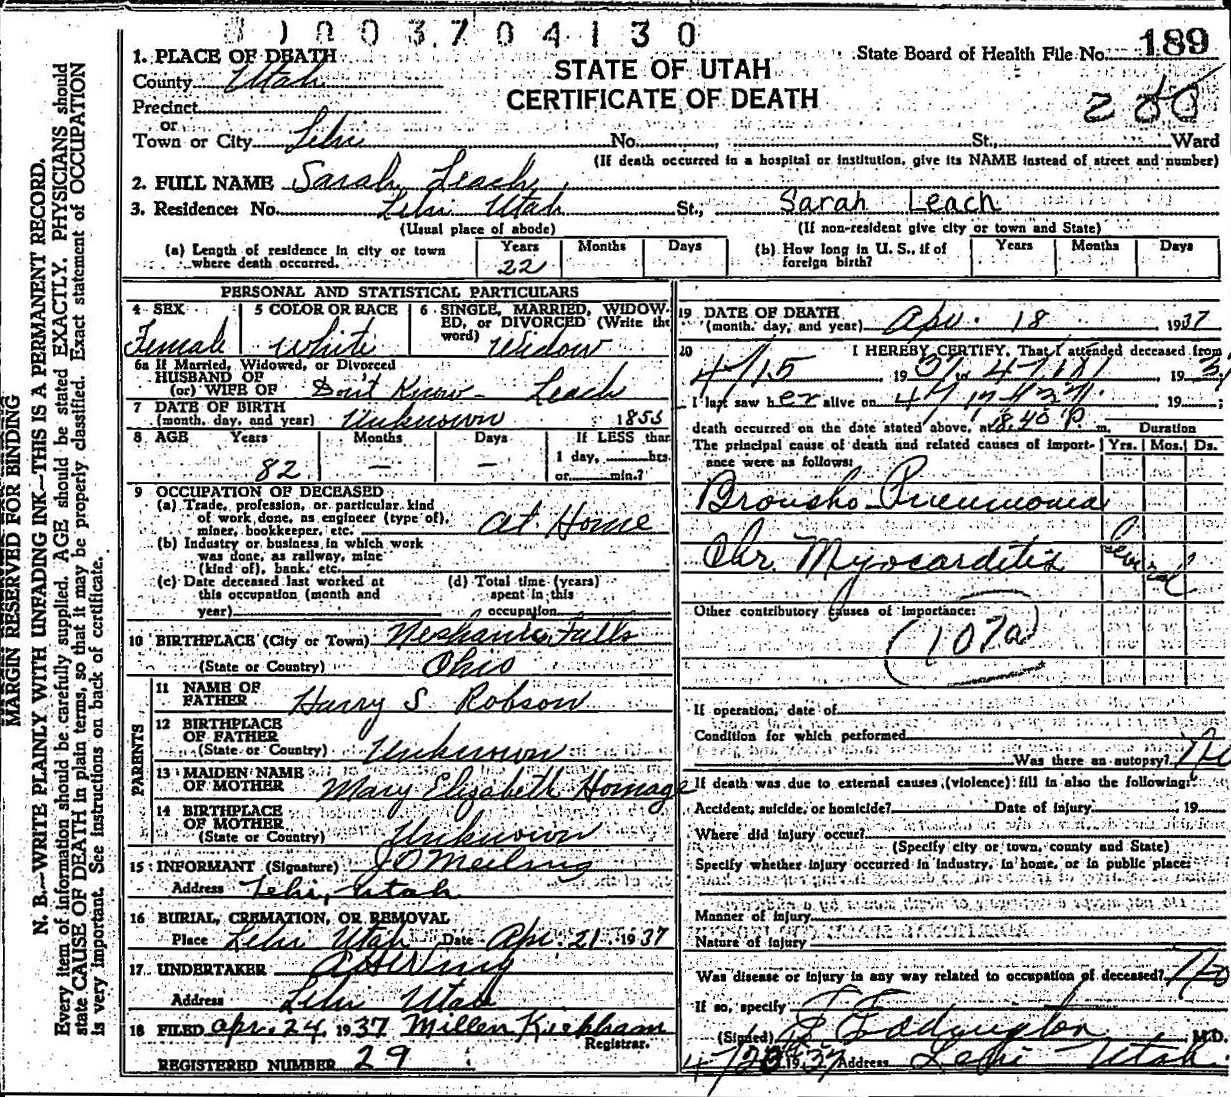 1003704130
1. PLACE OF DEATH
State Board of Health File No. 189
County Utah
STATE OF UTAH
CERTIFICATE OF DEATH
Precinct
or
Town or City Lehi No. St., Ward
(If death occurred in a hospital or institution, give its NAME instead of street and number)
2. FULL NAME Sarah Leach
3. Residence: No. Lehi Utah St., Sarah Leach
(Usual place of abode) (If non-resident give city or town and State)
(a) Length of residence in city or town where death occurred. Years 22 Months Days
(b) How long in U. S., if of foreign birth? Years Months Days
PERSONAL AND STATISTICAL PARTICULARS
4 SEX Female
5 COLOR OR RACE White
6 SINGLE, MARRIED, WIDOWED, or DIVORCED (Write the word) Widow
6a If Married, Widowed, or Divorced
HUSBAND OF
(or) WIFE OF Don't Know - Leach
7 DATE OF BIRTH
(month, day, and year) Unknown 1855
8 AGE Years 82 Months — Days — If LESS than
1 day, hrs.
or min.?
9 OCCUPATION OF DECEASED
(a) Trade, profession, or particular kind
of work done, as engineer (type of),
miner, bookkeeper, etc. At Home
(b) Industry or business in which work
was done, as railway, mine
(kind of), bank, etc.
(c) Date deceased last worked at
this occupation (month and
year)
(d) Total time (years)
spent in this
occupation
10 BIRTHPLACE (City or Town) Falls
(State or Country) Ohio
PARENTS
11 NAME OF
FATHER Harry S Robson
12 BIRTHPLACE
OF FATHER
(State or Country) Unknown
13 MAIDEN NAME
OF MOTHER Mary Elizabeth Homage
14 BIRTHPLACE
OF MOTHER
(State or Country) Unknown
15 INFORMANT (Signature) J O Meiling
Address Lehi, Utah
16 BURIAL, CREMATION, OR REMOVAL
Place Lehi Utah Date Apr. 21. 1937
17 UNDERTAKER
Address Lehi Utah
18 FILED Apr. 24, 1937 Registrar.
REGISTERED NUMBER 29
19 DATE OF DEATH
(month, day, and year) Apr. 18 1937
20 I HEREBY CERTIFY, That I attended deceased from
4/15 1937 to 4/18/ 1937
I last saw her alive on 19 ;
death occurred on the date stated above, at 8:40 P m.
The principal cause of death and related causes of importance were as follows: Duration Yrs. Mos. Ds.
Bronsho Pneumonia
Chr. Myocarditis Several
Other contributory causes of importance:
(107a)
If operation, date of
Condition for which performed
Was there an autopsy? No
If death was due to external causes (violence) fill in also the following:
Accident, suicide, or homicide? Date of injury 19
Where did injury occur?
(Specify city or town, county and State)
Specify whether injury occurred in industry, in home, or in public place:
Manner of injury
Nature of injury
Was disease or injury in any way related to occupation of deceased? No
If so, specify
(Signed) Eddington M.D.
4/23 1937 Address Lehi Utah
MARGIN RESERVED FOR BINDING
N. B.—WRITE PLAINLY WITH UNFADING INK—THIS IS A PERMANENT RECORD.
Every item of information should be carefully supplied. AGE should be stated EXACTLY. PHYSICIANS should
state CAUSE OF DEATH in plain terms, so that it may be properly classified. Exact statement of OCCUPATION
is very important. See instructions on back of certificate.